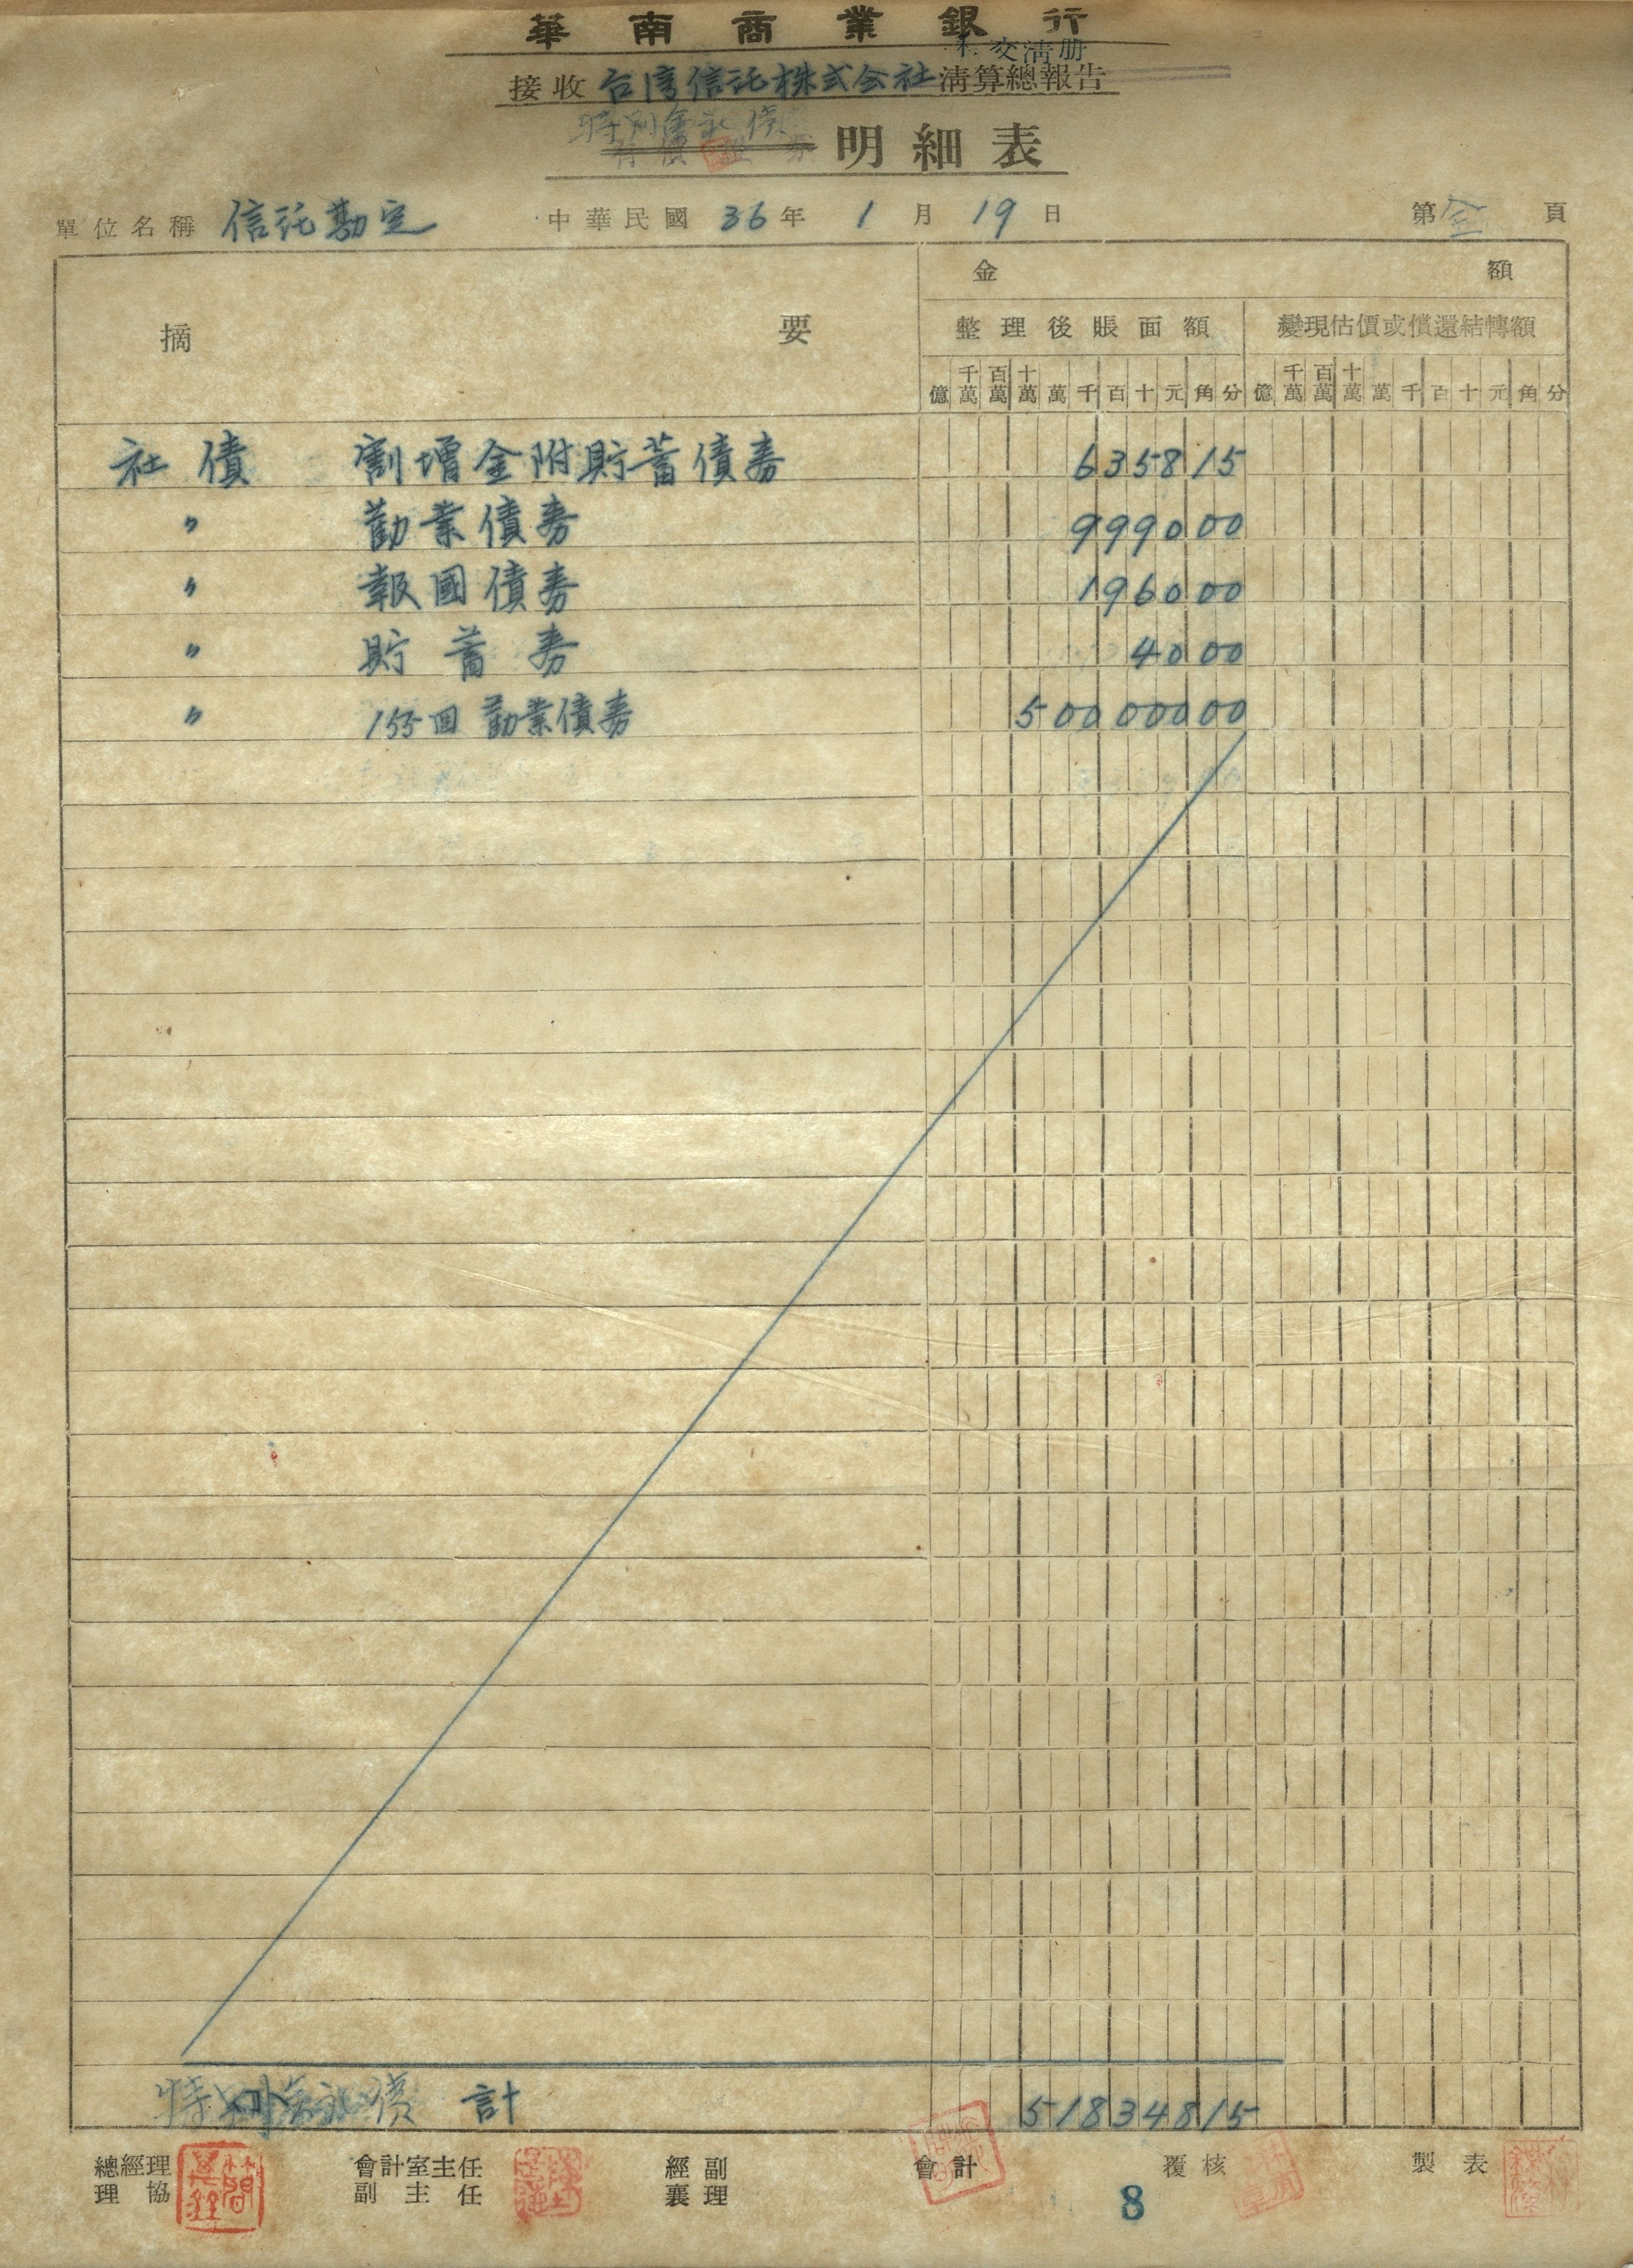 華南商業銀行
交清册
接收台湾信託株式会社清算總報告
特別會社債
有價證券明細表
單位名稱 信託勘定 中華民國 36 年 1 月 19 日 第 全 頁
摘要 金額
整理後賬面額 變現估價或償還結轉額
億 千萬 百萬 十萬 萬 千 百 十 元 角 分 億 千萬 百萬 十萬 萬 千 百 十 元 角 分
社債 割増金附貯蓄債券 635815
〃 勸業債券 999000
〃 報國債券 196000
〃 貯蓄券 4000
〃 155回 勸業債券 50000000
計 51834815
總經理 會計室主任 經副 會計 覆核 製表
理協 副主任 襄理
8